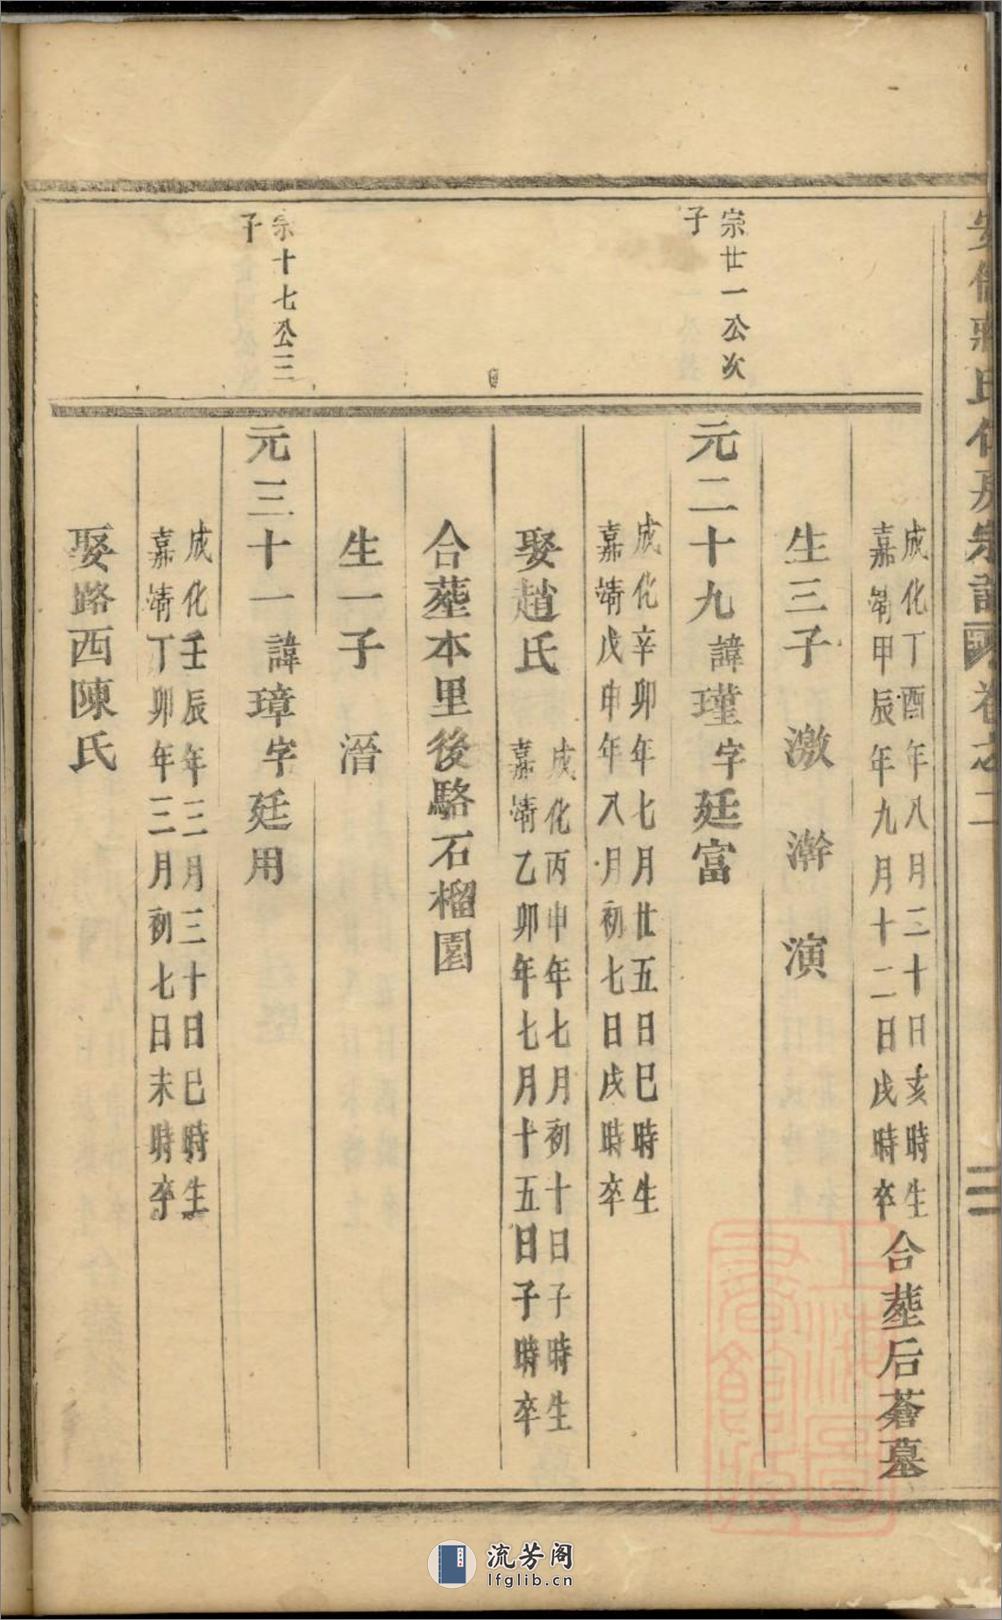 氏
宗譜
卷之二
成化丁酉年八月二十日亥時生
嘉靖甲辰年九月十二日戌時卒
合葬后蒼墓
生三子 激 澣 演
宗廿一公次
子
元二十九諱瑾字廷富
成化辛卯年七月廿五日巳時生
嘉靖戊申年八月初七日戌時卒
娶趙氏
成化丙申年七月初十日子時生
嘉靖乙卯年七月十五日子時卒
合葬本里後駱石榴園
生一子 溍
宗十七公三
子
元三十一諱璋字廷用
成化壬辰年三月三十日巳時生
嘉靖丁卯年三月初七日未時卒
娶路西陳氏
流芳阁
lfglib.cn